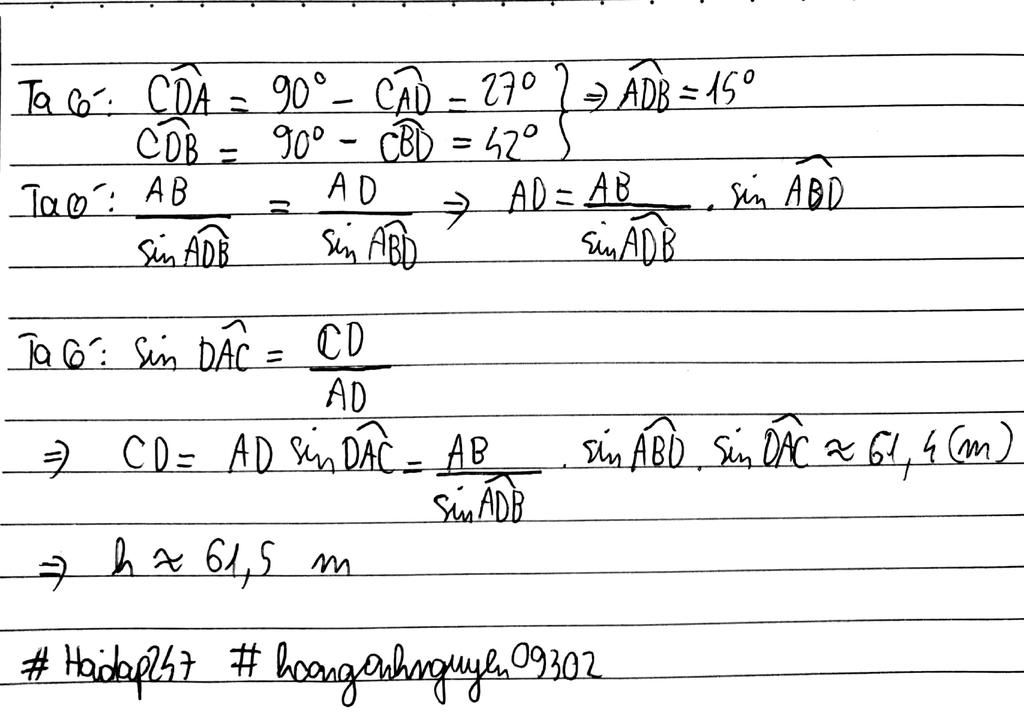 Ta có: CDA = 90° - CAD = 27° } ⇒ ADB = 15°
CDB = 90° - CBD = 42°
Ta có: AB / sin ADB = AD / sin ABD ⇒ AD = AB / sin ADB . sin ABD
Ta có: sin DAC = CD / AD
⇒ CD = AD sin DAC = AB / sin ADB . sin ABD . sin DAC ≈ 61,4 (m)
⇒ h ≈ 61,5 m
# Hoidap247 # hoanganhnguyen09302